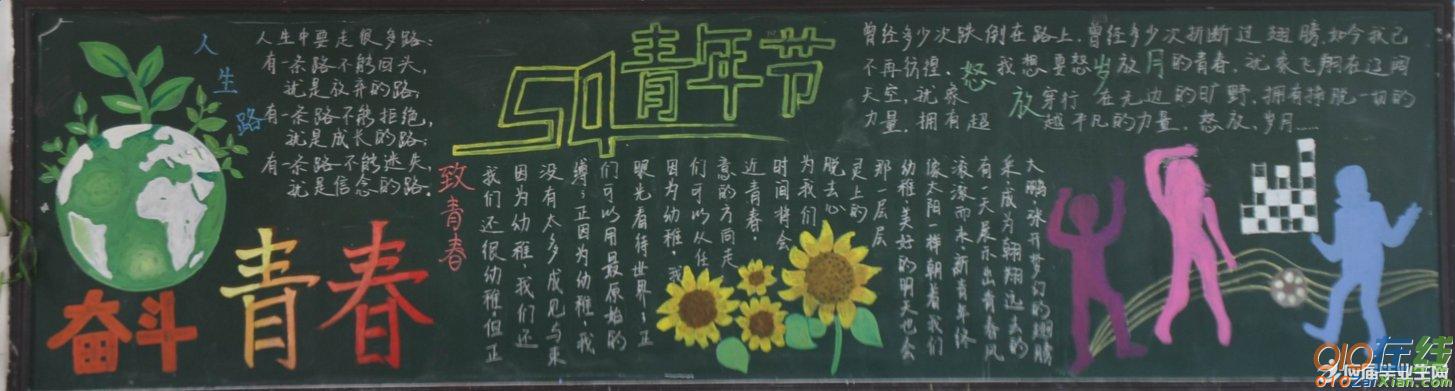 人生路
人生中要走很多路:
有一条路不能回头,
就是放弃的路;
有一条路不能拒绝,
就是成长的路;
有一条路不能迷失,
就是信念的路。
奋斗
青春
54青年节
致青春
我们还很幼稚,但正
因为幼稚,我们还
没有太多成见与束
缚;正因为幼稚,我
们可以用最原始的
眼光看待世界;正
因为幼稚,我
们可以从任
意的方向走
近青春。
时间将会
为我们
脱去心
灵上的
那一层层
幼稚,美好的明天也会
像太阳一样朝着我们
滚滚而来,新青年终
有一天展示出青春风
采,成为翱翔远去的
大鹏,张开梦幻的翅膀
怒放岁月
曾经多少次跌倒在路上,曾经多少次折断过翅膀,如今我已
不再彷徨。我想要怒放的青春,就象飞翔在辽阔
天空,就象穿行在无边的旷野,拥有挣脱一切的
力量。拥有超越平凡的力量。怒放,岁月……
010在线
应届毕业生网
010zaixian.com